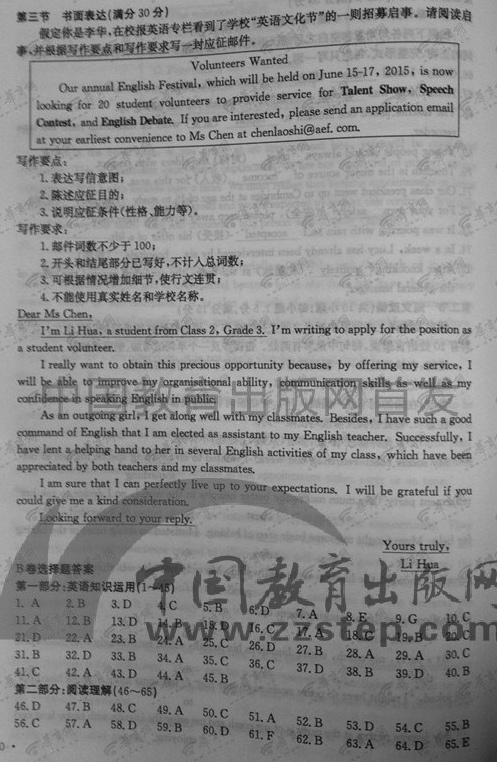 第三节 书面表达(满分30分)
假定你是李华,在校报英语专栏看到了学校“英语文化节”的一则招募启事。请阅读启
事,并根据写作要点和写作要求写一封应征邮件。
Volunteers Wanted
Our annual English Festival, which will be held on June 15-17, 2015, is now
looking for 20 student volunteers to provide service for Talent Show, Speech
Contest, and English Debate. If you are interested, please send an application email
at your earliest convenience to Ms Chen at chenlaoshi@aef.com.
写作要点:
1. 表达写信意图;
2. 陈述应征目的;
3. 说明应征条件(性格、能力等)。
写作要求:
1. 邮件词数不少于100;
2. 开头和结尾部分已写好,不计入总词数;
3. 可根据情况增加细节,使行文连贯;
4. 不能使用真实姓名和学校名称。
Dear Ms Chen,
I'm Li Hua, a student from Class 2, Grade 3. I'm writing to apply for the position as
a student volunteer.
I really want to obtain this precious opportunity because, by offering my service, I
will be able to improve my organisational ability, communication skills as well as my
confidence in speaking English in public.
As an outgoing girl, I get along well with my classmates. Besides, I have such a good
command of English that I am elected as assistant to my English teacher. Successfully, I
have lent a helping hand to her in several English activities of my class, which have been
appreciated by both teachers and my classmates.
I am sure that I can perfectly live up to your expectations. I will be grateful if you
could give me a kind consideration.
Looking forward to your reply.
Yours truly,
Li Hua
B卷选择题答案
第一部分:英语知识运用(1~45)
1. A 2. B 3. D 4. C 5. B 6. D 7. A 8. E 9. G 10. C
11. A 12. B 13. D 14. B 15. D 16. C 17. A 18. C 19. B 20. C
21. D 22. A 23. B 24. A 25. C 26. D 27. B 28. A 29. A 30. C
31. B 32. D 33. B 34. A 35. C 36. C 37. D 38. B 39. D 40. B
41. C 42. A 43. D 44. A 45. B
第二部分:阅读理解(46~65)
46. D 47. B 48. C 49. A 50. C 51. A 52. B 53. D 54. C 55. B
56. C 57. A 58. D 59. B 60. D 61. F 62. B 63. A 64. D 65. E
中国教育出版网
www.zzstep.com